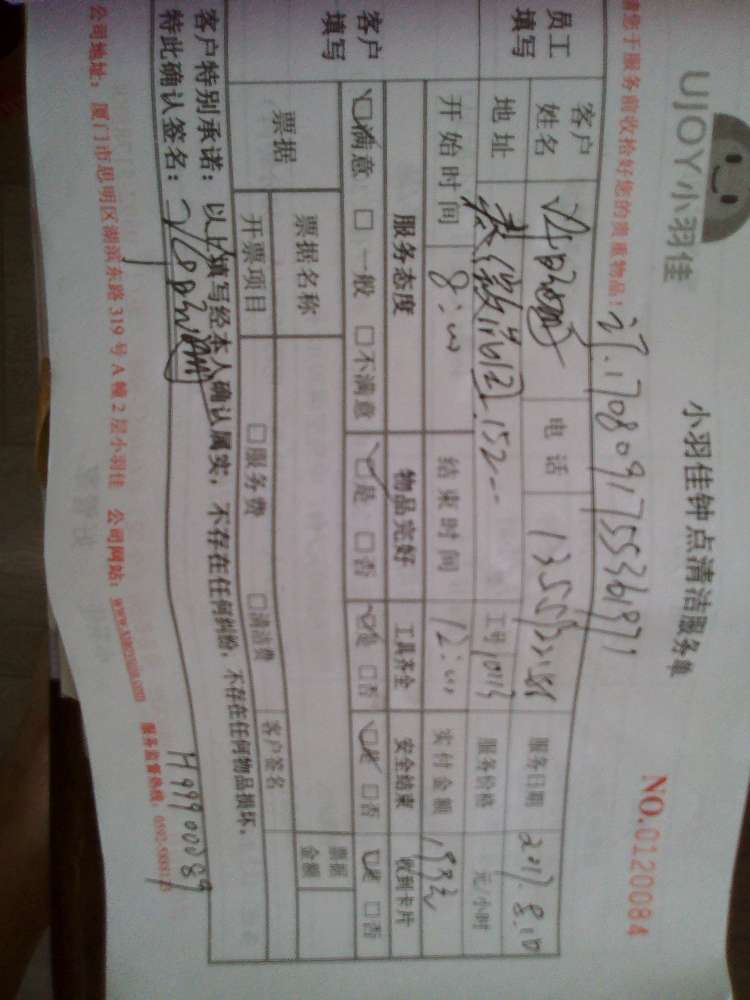 UJOY小羽佳
小羽佳钟点清洁服务单
NO.0120084
请您于服务前收拾好您的贵重物品!
汗.1708091755361871
员工填写
客户姓名
电话
服务日期 2017.8.10
地址
工号 10113
服务价格 元/小时
开始时间 8:00
结束时间 12:00
实付金额
客户填写
服务态度 物品完好 工具齐全 安全结束 收到卡片
☑满意 □一般 □不满意 ☑是 □否 ☑是 □否 ☑是 □否 ☑是 □否
票据
票据名称
票据金额
开票项目 □服务费 □清洁费 客户签名
客户特别承诺:以上填写经本人确认属实,不存在任何纠纷,不存在任何物品损坏,
特此确认签名:
H99900089
公司地址:厦门市思明区湖滨东路319号A幢2层小羽佳 公司网站: 服务监督热线: